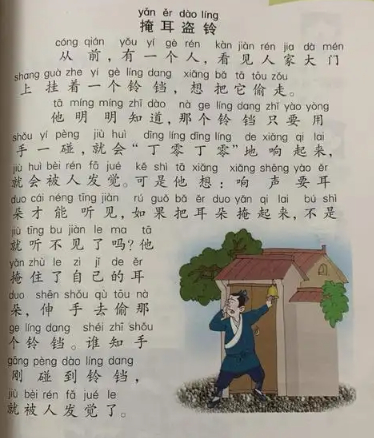 yǎn ěr dào líng
掩耳盗铃
cóng qián yǒu yí gè rén kàn jiàn rén jia dà mén
从前，有一个人，看见人家大门
shang guà zhe yí gè líng dang xiǎng bǎ tā tōu zǒu
上挂着一个铃铛，想把它偷走。
tā míng míng zhī dào nà ge líng dang zhǐ yào yòng
他明明知道，那个铃铛只要用
shǒu yí pèng jiù huì dīng líng dīng líng de xiǎng qi lai
手一碰，就会“丁零丁零”地响起来，
jiù huì bèi rén fā jué kě shì tā xiǎng xiǎng shēng yào ěr
就会被人发觉。可是他想：响声要耳
duo cái néng tīng jiàn rú guǒ bǎ ěr duo yǎn qi lai bú shì
朵才能听见，如果把耳朵掩起来，不是
jiù tīng bu jiàn le ma tā
就听不见了吗？他
yǎn zhù le zì jǐ de ěr
掩住了自己的耳
duo shēn shǒu qù tōu nà
朵，伸手去偷那
ge líng dang shéi zhī shǒu
个铃铛。谁知手
gāng pèng dào líng dang
刚碰到铃铛，
jiù bèi rén fā jué le
就被人发觉了。